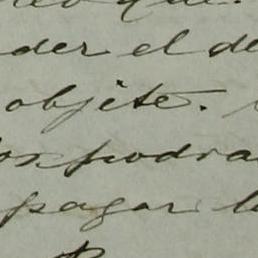 der el de
objete.
os podra
pagar l